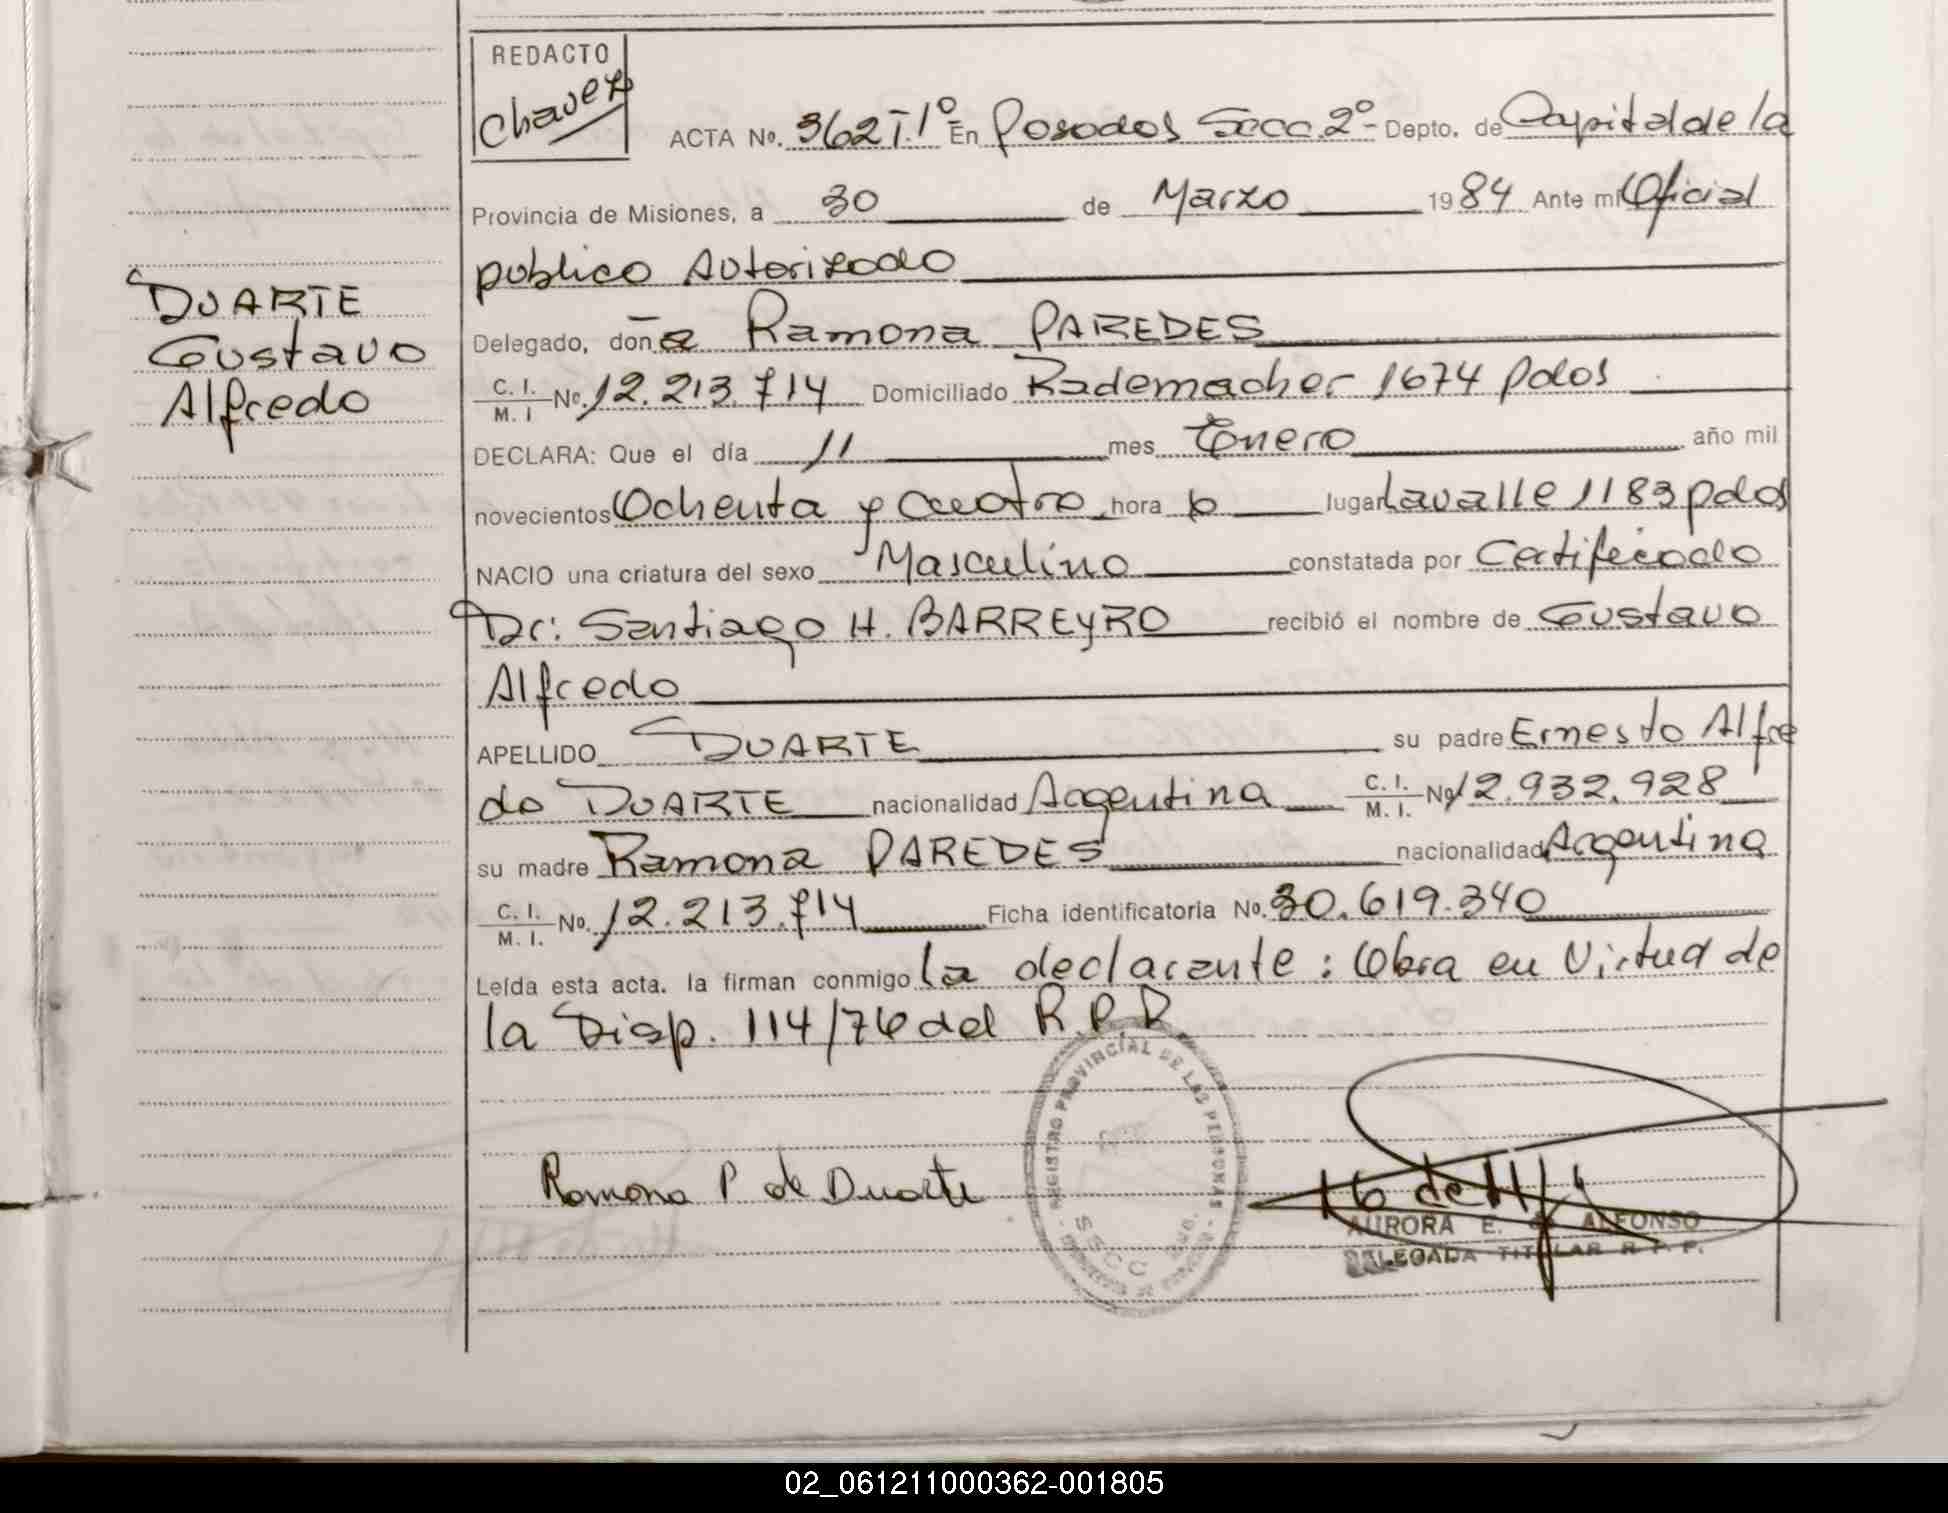 REDACTO
Chavez
ACTA No. 362 T.1º En Posadas Secc. 2º- Depto. de Capital de la
Provincia de Misiones, a 30 de Marzo 1984 Ante mí Oficial
publico Autorizado
Delegado, doña Ramona PAREDES
C. I.
M. I No. 12.213.714 Domiciliado Rademacher 1674 Pdas
DECLARA: Que el día 11 mes Enero año mil
novecientos Ochenta y Cuatro hora 6 lugar Lavalle 1183 pdas
NACIO una criatura del sexo Masculino constatada por Certificado
Dr: Santiago H. BARREYRO recibió el nombre de Gustavo
Alfredo
APELLIDO DUARTE su padre Ernesto Alfre
do DUARTE nacionalidad Argentina C. I.
M. I. No 12.932.928
su madre Ramona PAREDES nacionalidad Argentina
C. I.
M. I. No. 12.213.714 Ficha identificatoria No. 30.619.340
Leída esta acta. la firman conmigo la declarante: Obra en Virtud de
la Disp. 114/76 del R.P.P.
DUARTE
Gustavo
Alfredo
Ramona P de Duarte
REGISTRO PROVINCIAL DE LAS PERSONAS
AURORA E. de ALFONSO
DELEGADA TITULAR R. P. P.
02_061211000362-001805